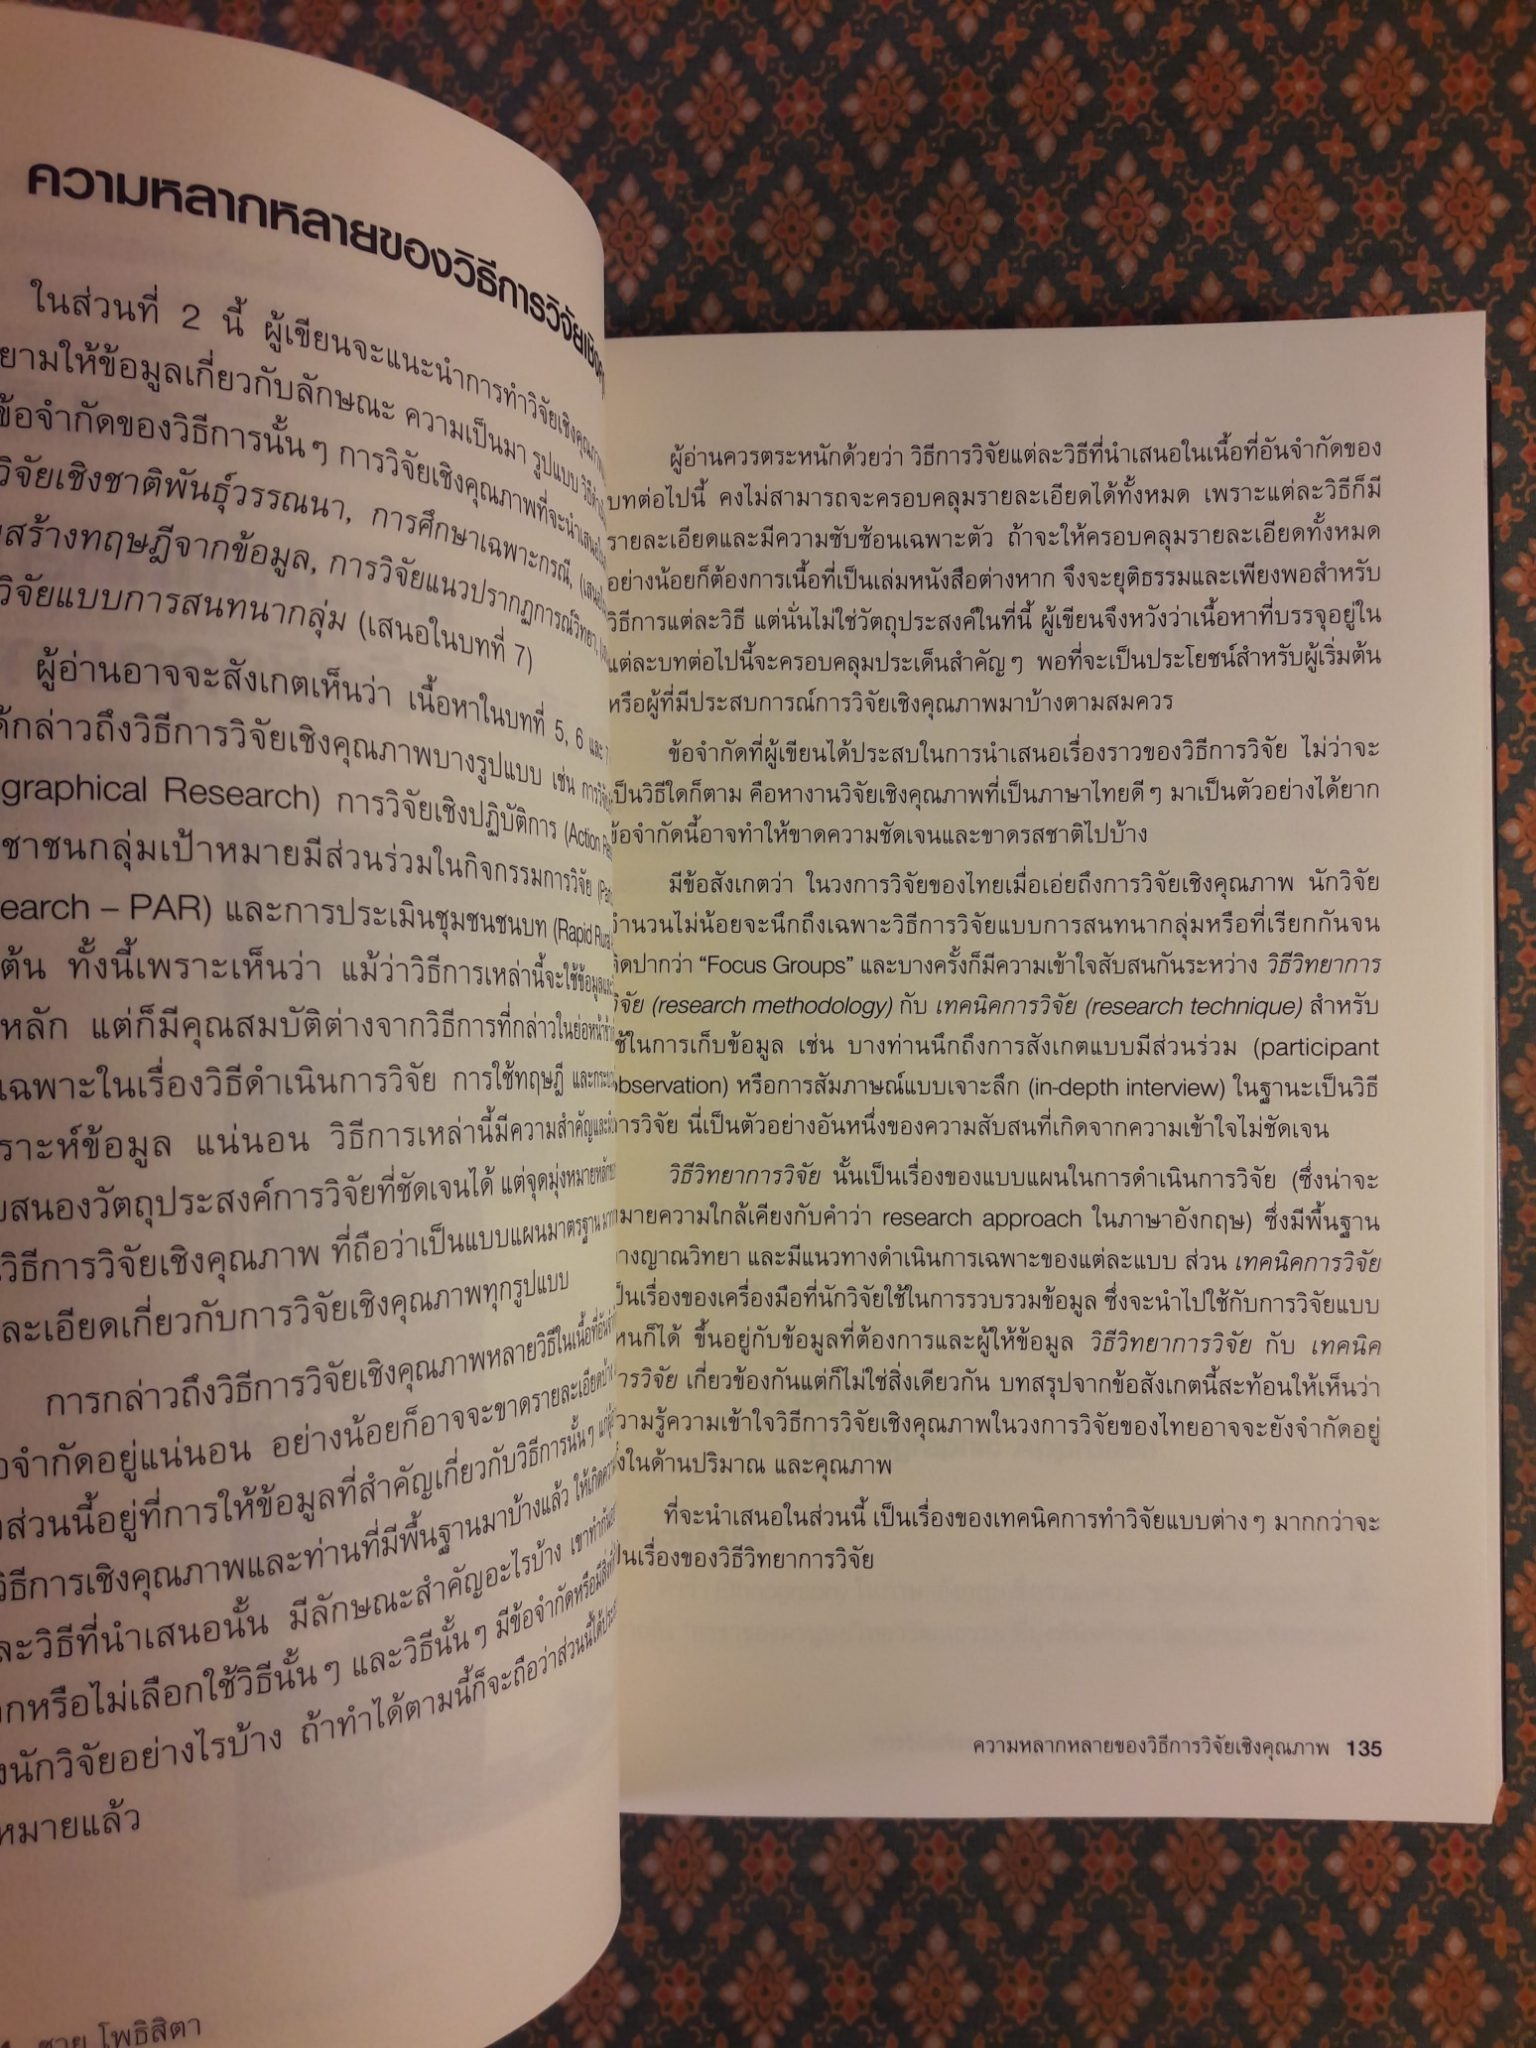 ความหลากหลายของวิธีการวิจัยเชิงคุ
ในส่วนที่ 2 นี้ ผู้เขียนจะแนะนำการทำวิจัยเชิงคุณภาพ
ยามให้ข้อมูลเกี่ยวกับลักษณะ ความเป็นมา รูปแบบ
ข้อจำกัดของวิธีการนั้นๆ การวิจัยเชิงคุณภาพที่จะนำเสนอ
วิจัยเชิงชาติพันธุ์วรรณนา, การศึกษาเฉพาะกรณี,
สร้างทฤษฎีจากข้อมูล, การวิจัยแนวปรากฏการณ์วิทยา,
วิจัยแบบการสนทนากลุ่ม (เสนอในบทที่ 7)
ผู้อ่านอาจจะสังเกตเห็นว่า เนื้อหาในบทที่ 5, 6 และ 7
ด้กล่าวถึงวิธีการวิจัยเชิงคุณภาพบางรูปแบบ เช่น
graphical Research) การวิจัยเชิงปฏิบัติการ (Action
ชาชนกลุ่มเป้าหมายมีส่วนร่วมในกิจกรรมการวิจัย
earch – PAR) และการประเมินชุมชนชนบท (Rapid Rural
ต้น ทั้งนี้เพราะเห็นว่า แม้ว่าวิธีการเหล่านี้จะใช้ข้อมูล
หลัก แต่ก็มีคุณสมบัติต่างจากวิธีการที่กล่าวในย่อหน้า
เฉพาะในเรื่องวิธีดำเนินการวิจัย การใช้ทฤษฎี
ราะห์ข้อมูล แน่นอน วิธีการเหล่านี้มีความสำคัญ
บสนองวัตถุประสงค์การวิจัยที่ชัดเจนได้ แต่จุดมุ่งหมายหลัก
วิธีการวิจัยเชิงคุณภาพ ที่ถือว่าเป็นแบบแผนมาตรฐาน
ละเอียดเกี่ยวกับการวิจัยเชิงคุณภาพทุกรูปแบบ
การกล่าวถึงวิธีการวิจัยเชิงคุณภาพหลายวิธีในเนื้อที่
อจำกัดอยู่แน่นอน อย่างน้อยก็อาจจะขาดรายละเอียดบ้าง
ส่วนนี้อยู่ที่การให้ข้อมูลที่สำคัญเกี่ยวกับวิธีการนั้นๆ
วิธีการเชิงคุณภาพและท่านที่มีพื้นฐานมาบ้างแล้ว
ละวิธีที่นำเสนอนั้น มีลักษณะสำคัญอะไรบ้าง
กหรือไม่เลือกใช้วิธีนั้นๆ และวิธีนั้นๆ มีข้อจำกัดหรือ
งนักวิจัยอย่างไรบ้าง ถ้าทำได้ตามนี้ก็จะถือว่าส่วนนี้ได้
หมายแล้ว
ชาย โพธิสิตา
ผู้อ่านควรตระหนักด้วยว่า วิธีการวิจัยแต่ละวิธีที่นำเสนอในเนื้อที่อันจำกัดของ
บทต่อไปนี้ คงไม่สามารถจะครอบคลุมรายละเอียดได้ทั้งหมด เพราะแต่ละวิธีก็มี
รายละเอียดและมีความซับซ้อนเฉพาะตัว ถ้าจะให้ครอบคลุมรายละเอียดทั้งหมด
อย่างน้อยก็ต้องการเนื้อที่เป็นเล่มหนังสือต่างหาก จึงจะยุติธรรมและเพียงพอสำหรับ
วิธีการแต่ละวิธี แต่นั่นไม่ใช่วัตถุประสงค์ในที่นี้ ผู้เขียนจึงหวังว่าเนื้อหาที่บรรจุอยู่ใน
แต่ละบทต่อไปนี้จะครอบคลุมประเด็นสำคัญๆ พอที่จะเป็นประโยชน์สำหรับผู้เริ่มต้น
หรือผู้ที่มีประสบการณ์การวิจัยเชิงคุณภาพมาบ้างตามสมควร
ข้อจำกัดที่ผู้เขียนได้ประสบในการนำเสนอเรื่องราวของวิธีการวิจัย ไม่ว่าจะ
เป็นวิธีใดก็ตาม คือหางานวิจัยเชิงคุณภาพที่เป็นภาษาไทยดีๆ มาเป็นตัวอย่างได้ยาก
ข้อจำกัดนี้อาจทำให้ขาดความชัดเจนและขาดรสชาติไปบ้าง
มีข้อสังเกตว่า ในวงการวิจัยของไทยเมื่อเอ่ยถึงการวิจัยเชิงคุณภาพ นักวิจัย
จำนวนไม่น้อยจะนึกถึงเฉพาะวิธีการวิจัยแบบการสนทนากลุ่มหรือที่เรียกกันจน
ติดปากว่า “Focus Groups” และบางครั้งก็มีความเข้าใจสับสนกันระหว่าง วิธีวิทยาการ
วิจัย (research methodology) กับ เทคนิคการวิจัย (research technique) สำหรับ
ใช้ในการเก็บข้อมูล เช่น บางท่านนึกถึงการสังเกตแบบมีส่วนร่วม (participant
observation) หรือการสัมภาษณ์แบบเจาะลึก (in-depth interview) ในฐานะเป็นวิธี
การวิจัย นี่เป็นตัวอย่างอันหนึ่งของความสับสนที่เกิดจากความเข้าใจไม่ชัดเจน
วิธีวิทยาการวิจัย นั้นเป็นเรื่องของแบบแผนในการดำเนินการวิจัย (ซึ่งน่าจะ
หมายความใกล้เคียงกับคำว่า research approach ในภาษาอังกฤษ) ซึ่งมีพื้นฐาน
ทางญาณวิทยา และมีแนวทางดำเนินการเฉพาะของแต่ละแบบ ส่วน เทคนิคการวิจัย
เป็นเรื่องของเครื่องมือที่นักวิจัยใช้ในการรวบรวมข้อมูล ซึ่งจะนำไปใช้กับการวิจัยแบบ
ไหนก็ได้ ขึ้นอยู่กับข้อมูลที่ต้องการและผู้ให้ข้อมูล วิธีวิทยาการวิจัย กับ เทคนิค
การวิจัย เกี่ยวข้องกันแต่ก็ไม่ใช่สิ่งเดียวกัน บทสรุปจากข้อสังเกตนี้สะท้อนให้เห็นว่า
ความรู้ความเข้าใจวิธีการวิจัยเชิงคุณภาพในวงการวิจัยของไทยอาจจะยังจำกัดอยู่
ทั้งในด้านปริมาณ และคุณภาพ
ที่จะนำเสนอในส่วนนี้ เป็นเรื่องของเทคนิคการทำวิจัยแบบต่างๆ มากกว่าจะ
เป็นเรื่องของวิธีวิทยาการวิจัย
ความหลากหลายของวิธีการวิจัยเชิงคุณภาพ 135